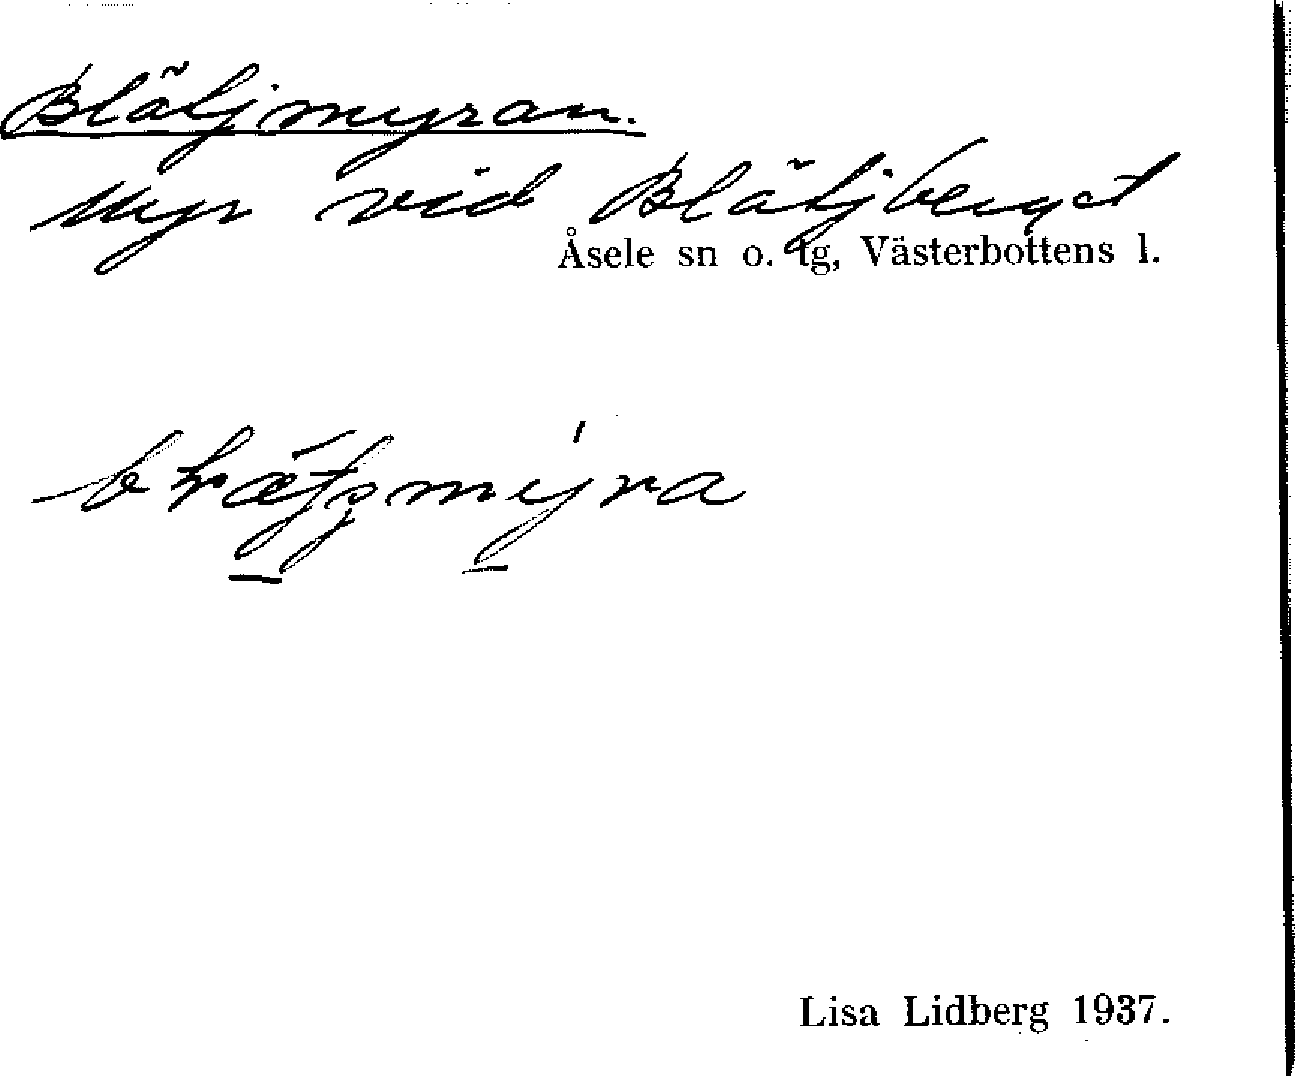 Blältjmyran.
Myr vid Blältjberget
Åsele sn o. tg, Västerbottens l.
Lisa Lidberg 1937.